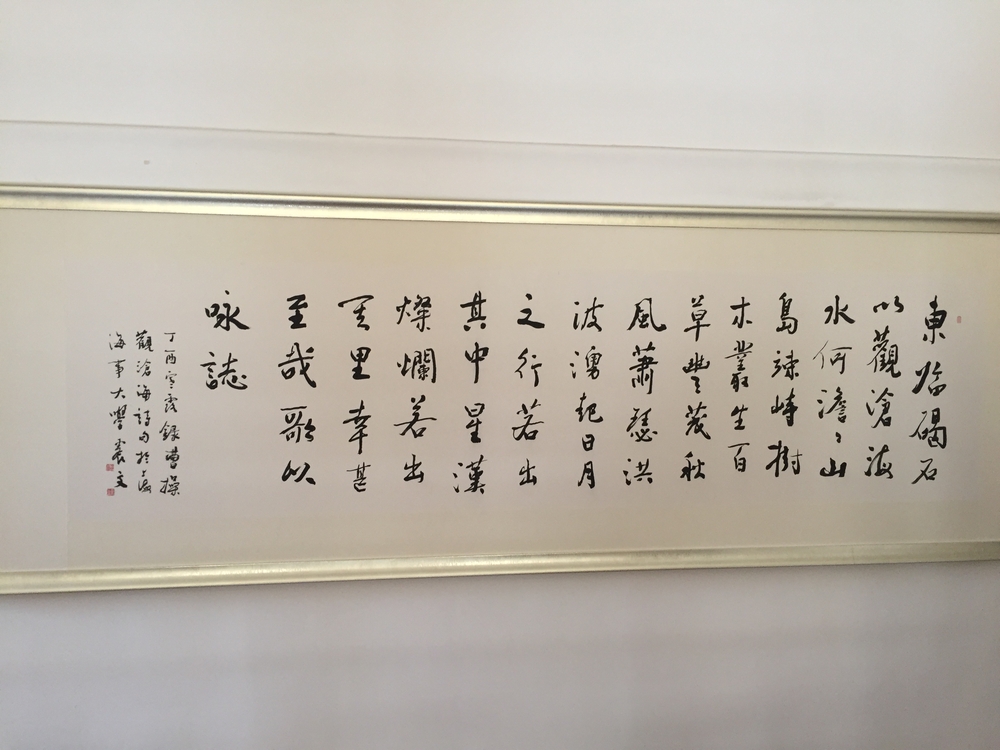 東臨碣石
以觀滄海
水何澹〻山
島竦峙樹
木叢生百
草豐茂秋
風蕭瑟洪
波湧起日月
之行若出
其中星漢
燦爛若出
其里幸甚
至哉歌以
咏誌
丁酉寒露錄曹操
觀滄海詩句於上海
海事大學